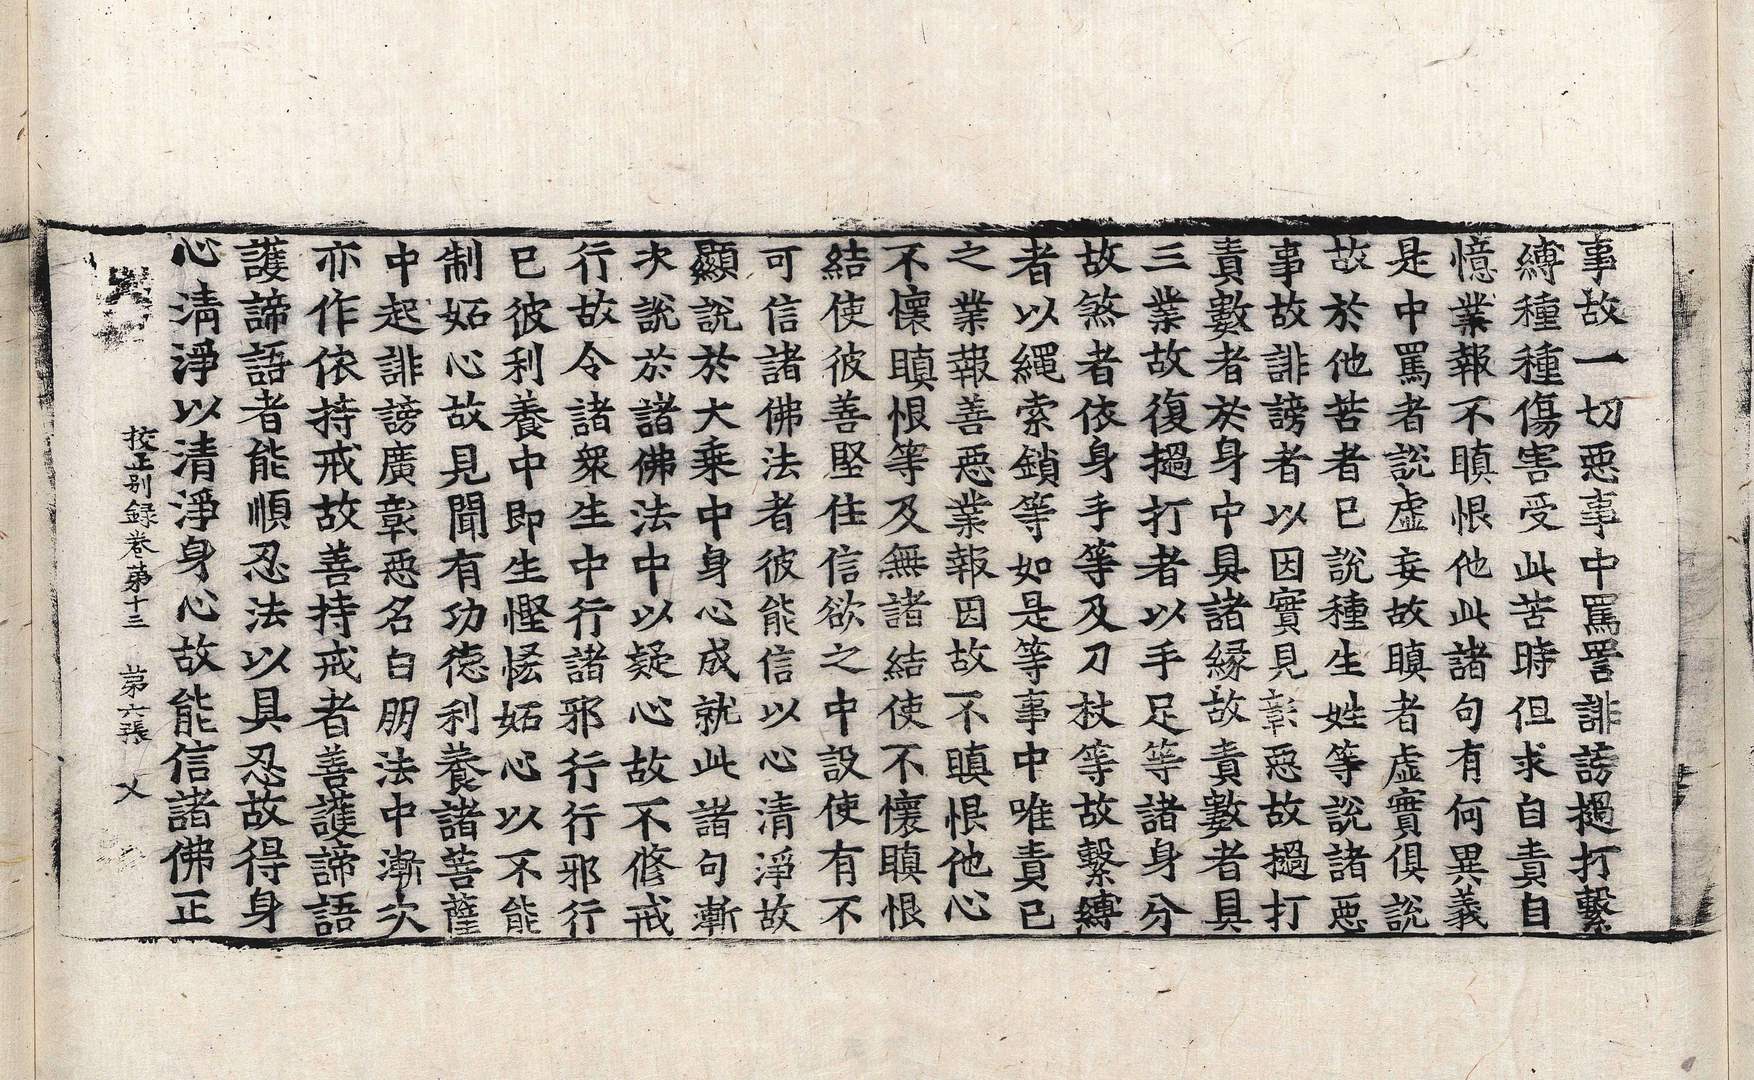 事故一切惡事中罵詈誹謗撾打繫
縛種種傷害受此苦時但求自責自
憶業報不瞋恨他此諸句有何異義
是中罵者說虛妄故瞋者虛實俱說
故於他苦者已說種生姓等說諸惡
事故誹謗者以因實見彰惡故撾打
責數者於身中具諸緣故責數者具
三業故復撾打者以手足等諸身分
故煞者依身手等及刀杖等故繫縛
者以繩索鎖等如是等事中唯責已
之業報善惡業報因故不瞋恨他心
不懷瞋恨等及無諸結使不懷瞋恨
結使彼善堅住信欲之中設使有不
可信諸佛法者彼能信以心清淨故
顯說於大乘中身心成就此諸句漸
次說於諸佛法中以疑心故不修戒
行故令諸衆生中行諸邪行行邪行
已彼利養中即生慳悋妬心以不能
制妬心故見聞有功德利養諸菩薩
中起誹謗廣彰惡名白朋法中漸次
亦作依持戒故善持戒者善護諦語
護諦語者能順忍法以具忍故得身
心清淨以清淨身心故能信諸佛正
挍正别録卷第十三 第六張 乂